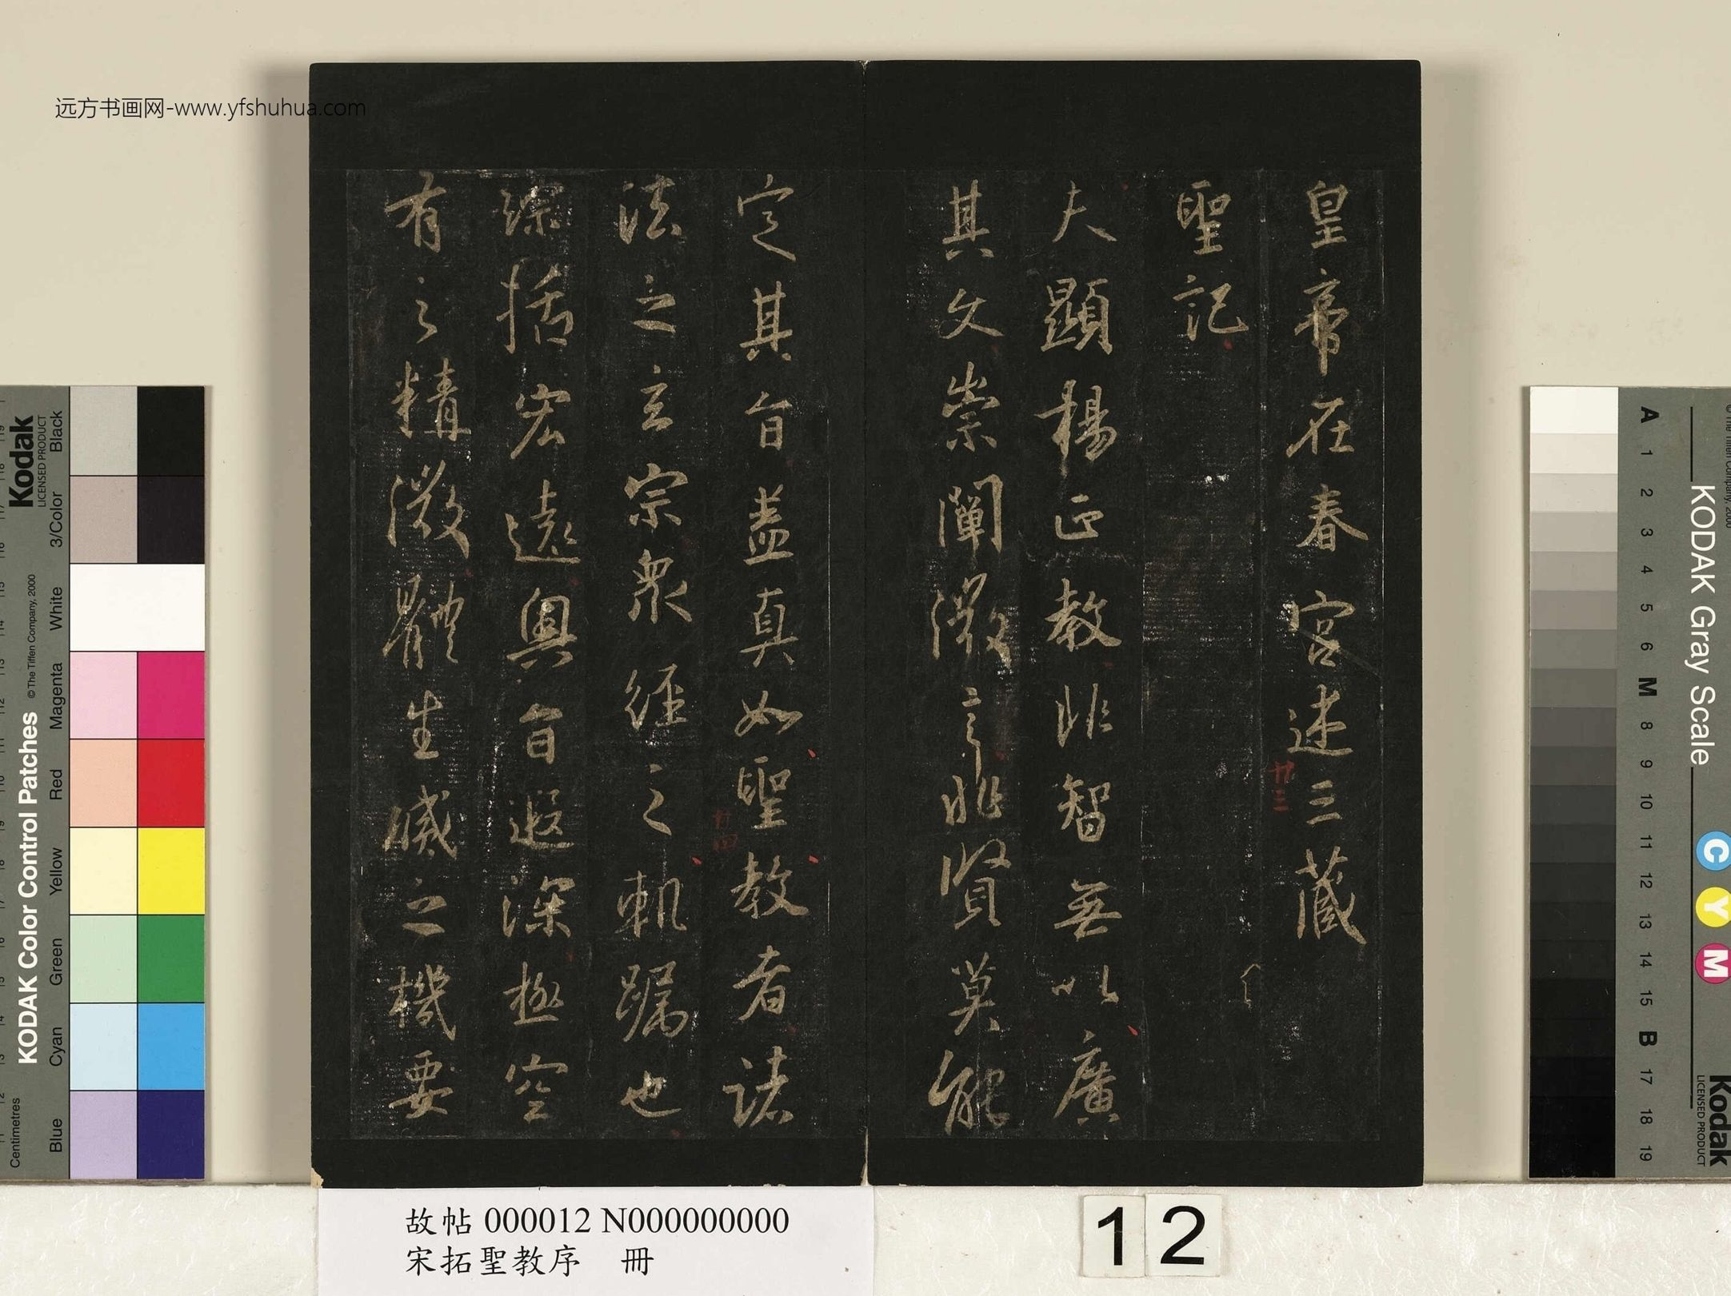 远方书画网-www.yfshuhua.com
皇帝在春宮述三藏
聖記
夫顯揚正教非智無以廣
其文崇闡微言非賢莫能
定其旨蓋真如聖教者諸
法之玄宗眾經之軌躅也
綜括宏遠奧旨遐深極空
有之精微體生滅之機要
廿三
廿四
故帖 000012 N000000000
宋拓聖教序 冊
12
Kodak
LICENSED PRODUCT
KODAK Color Control Patches
© The Tiffen Company, 2000
Centimetres
Blue
Cyan
Green
Yellow
Red
Magenta
White
3/Color
Black
KODAK Gray Scale
A 1 2 3 4 5 6 M 8 9 10 11 12 13 14 15 B 17 18 19
C
Y
M
Kodak
LICENSED PRODUCT